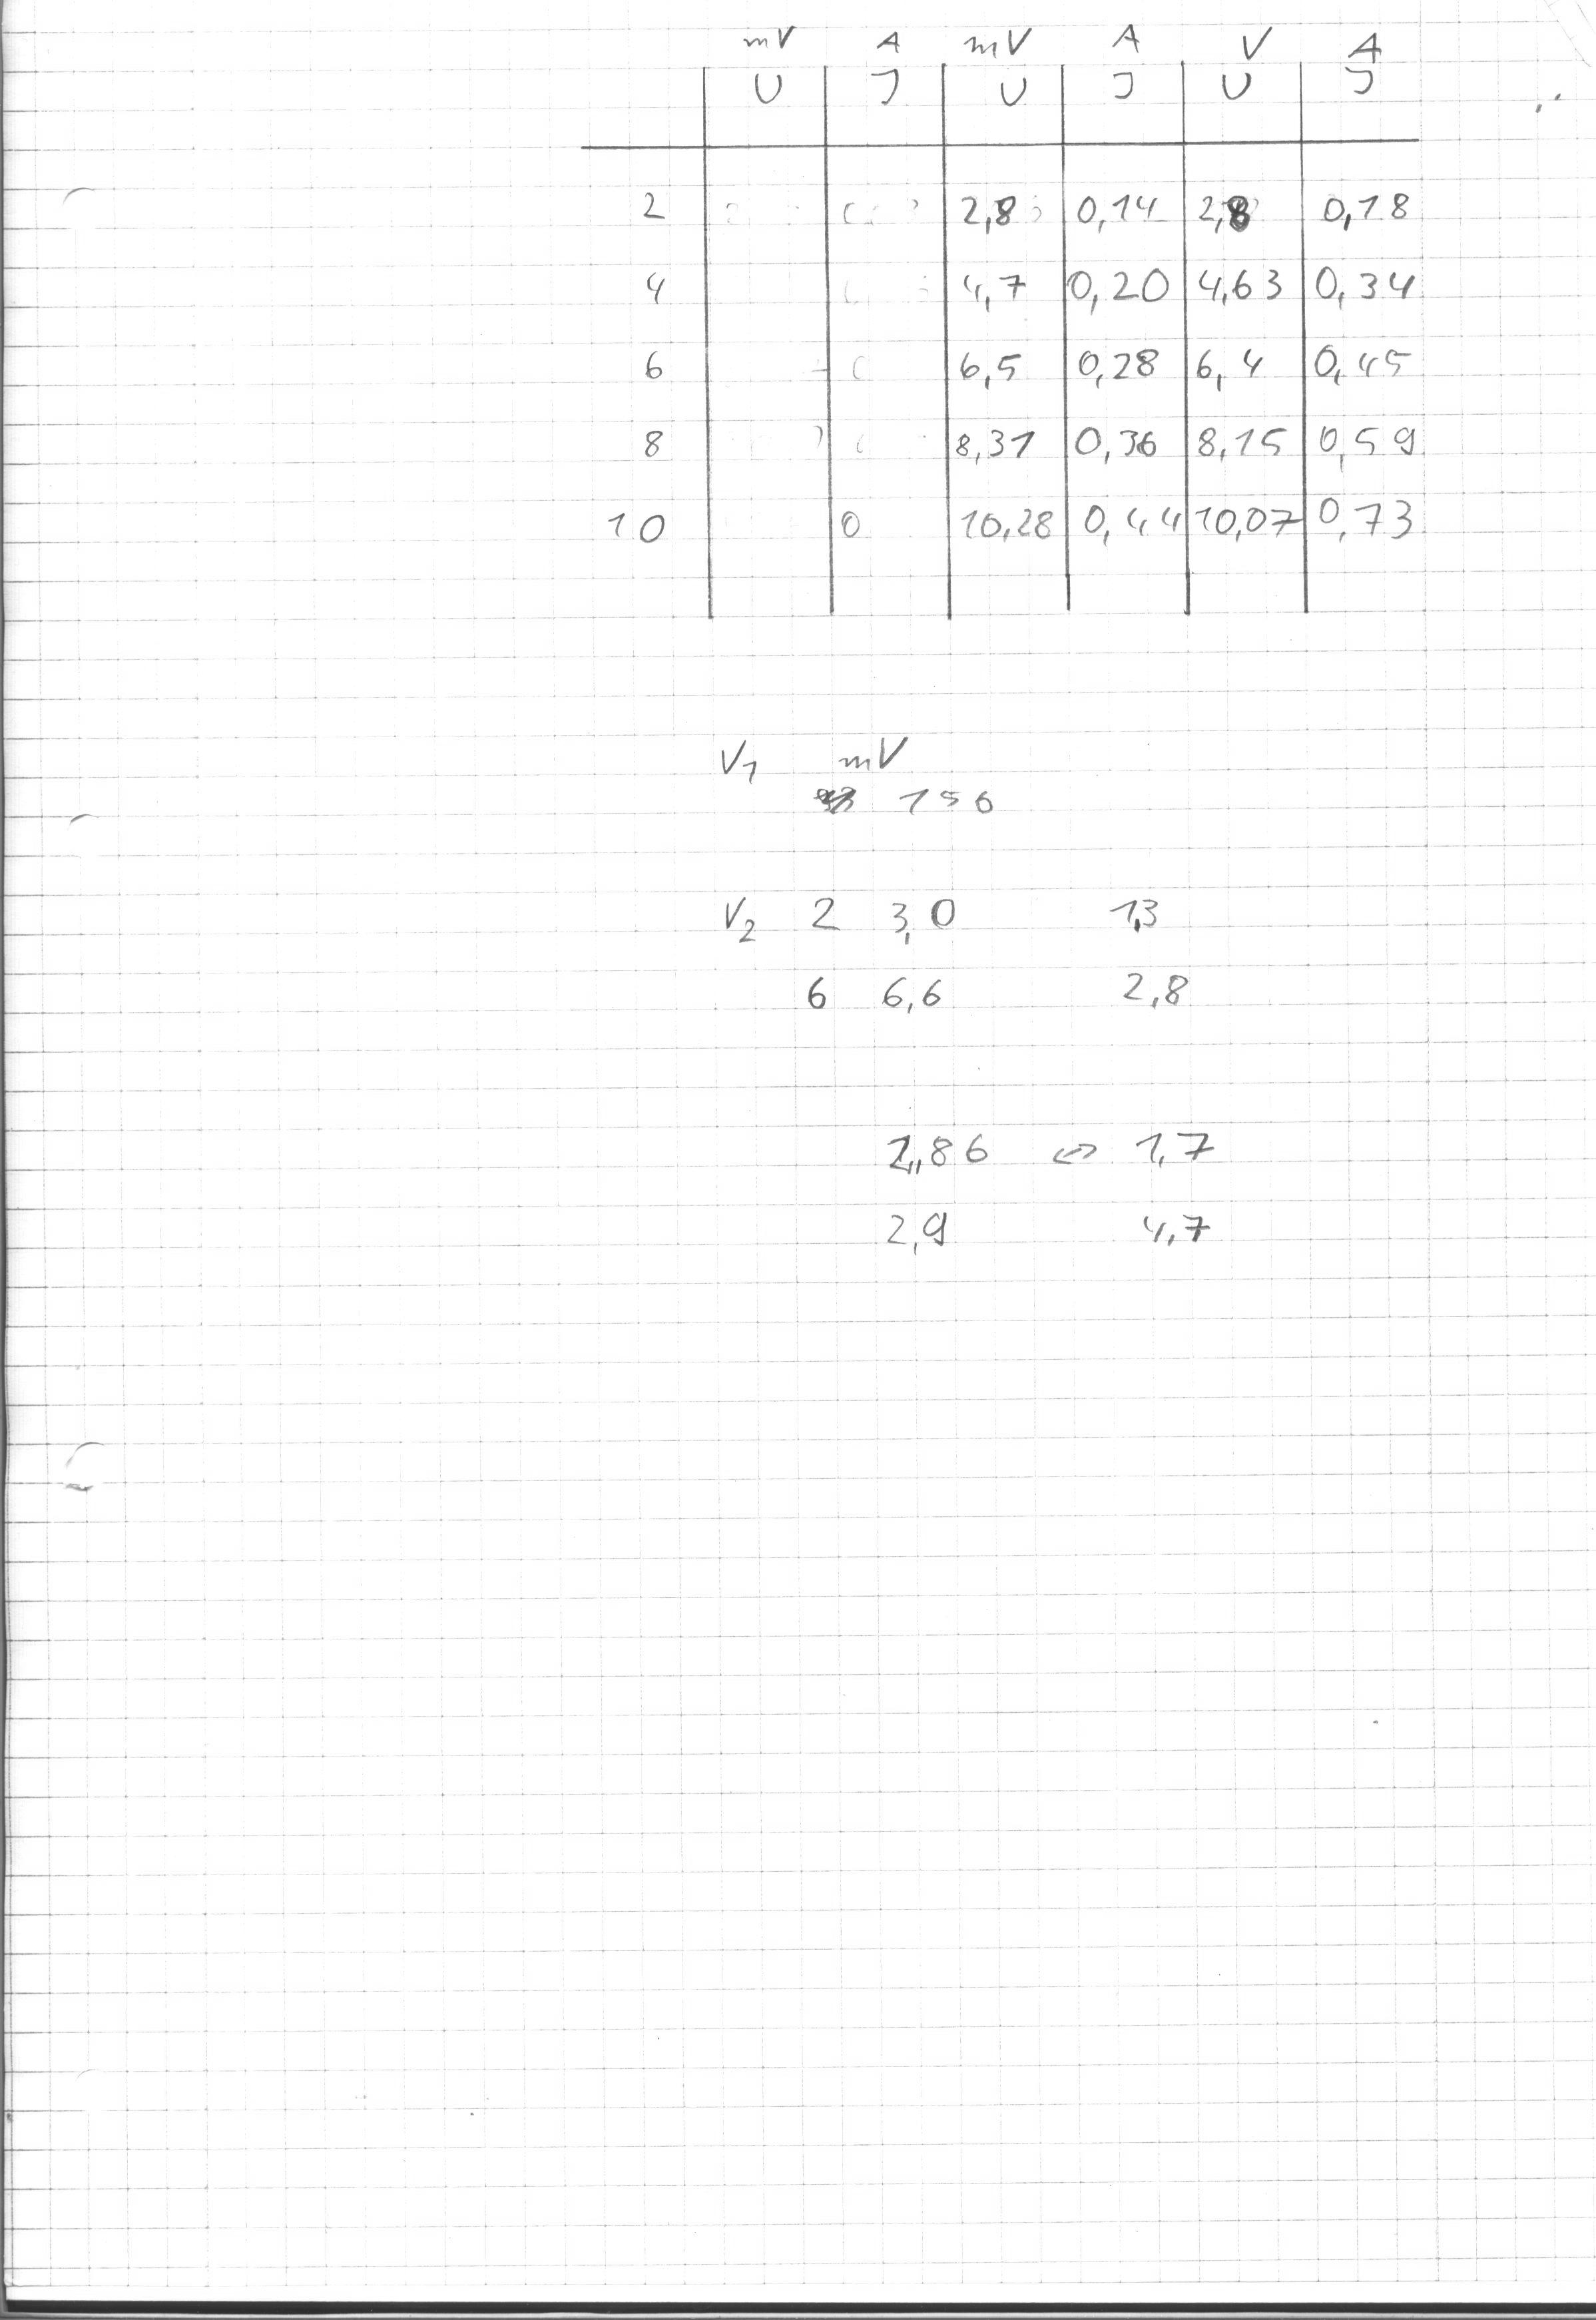 mV A mV A V A
U J U J U J
2 2,8 0,14 2,8 0,18
4 4,7 0,20 4,63 0,34
6 6,5 0,28 6,4 0,45
8 8,31 0,36 8,15 0,59
10 0 10,28 0,44 10,07 0,73
V1 mV
156
V2 2 3,0 1,3
6 6,6 2,8
,86 ⇔ 1,7
2,9 4,7